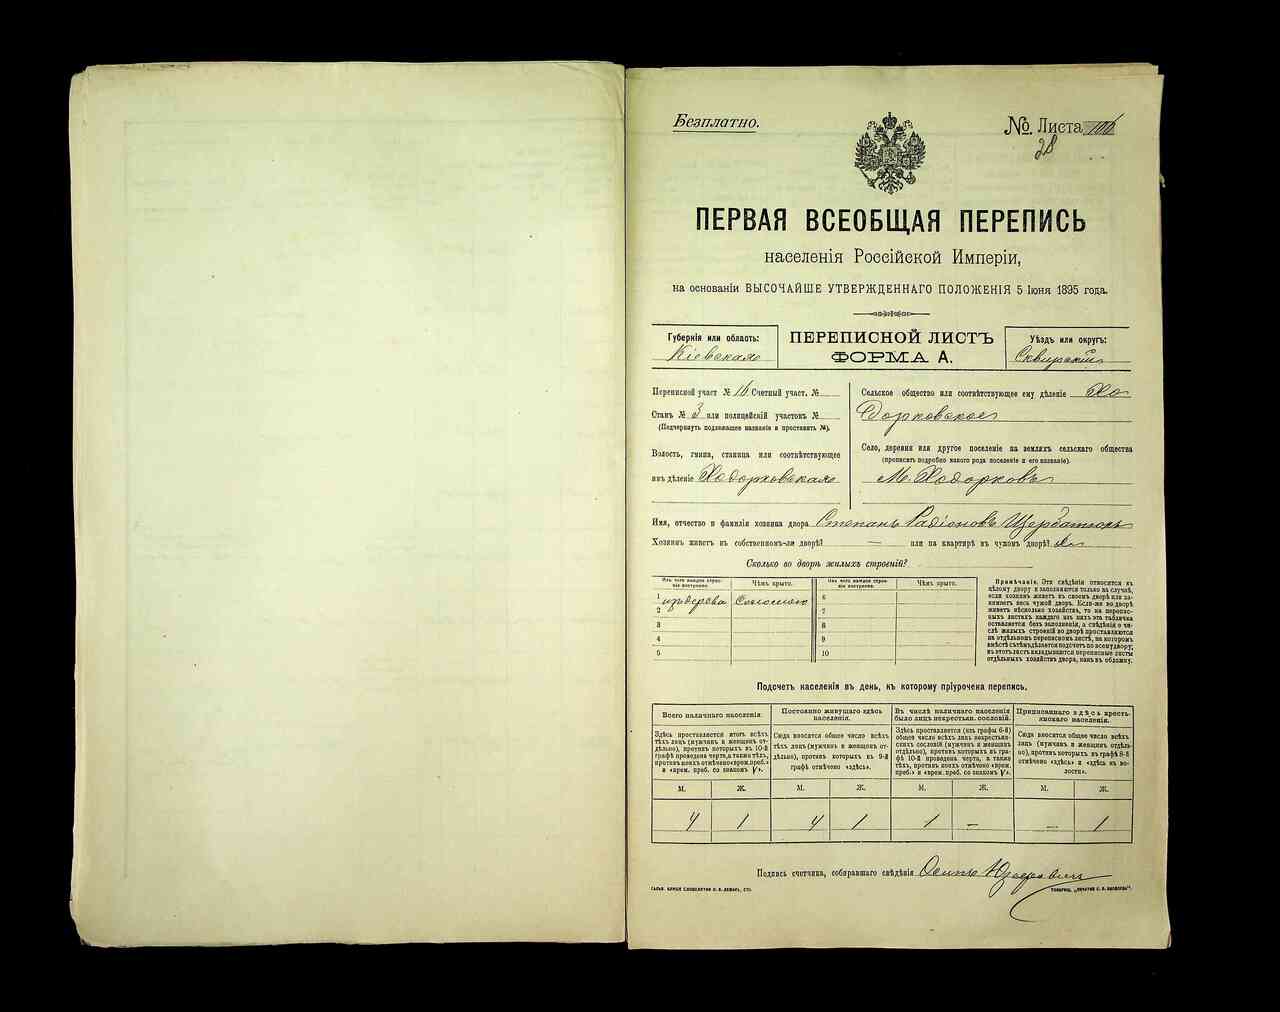 Безплатно.
№ Листа 106
28
ПЕРВАЯ ВСЕОБЩАЯ ПЕРЕПИСЬ
населенія Россійской Имперіи,
на основаніи ВЫСОЧАЙШЕ УТВЕРЖДЕННАГО ПОЛОЖЕНІЯ 5 Іюня 1895 года.
Губернія или область:
Кіевская
ПЕРЕПИСНОЙ ЛИСТЪ
ФОРМА А.
Уѣздъ или округъ:
Сквирскій
Переписной участ № 16 Счетный участ. №
Станъ № 3 или полицейскій участокъ №
(Подчеркнуть подлежащее названіе и проставить №).
Волость, гмина, станица или соотвѣтствующее
имъ дѣленіе Ходорковская
Сельское общество или соотвѣтствующее ему дѣленіе Хо
дорковское
Село, деревня или другое поселеніе на земляхъ сельскаго общества
(прописать подробно какого рода поселеніе и его названіе).
М. Ходорковъ
Имя, отчество и фамилія хозяина двора Степанъ Радіоновъ
Хозяинъ живетъ въ собственномъ-ли дворѣ? — или на квартирѣ въ чужомъ дворѣ? Да
Сколько во дворѣ жилыхъ строеній?
Изъ чего каждое строеніе построено.
Чѣмъ крыто.
Изъ чего каждое строеніе построено.
Чѣмъ крыто.
1 изъ дерева Соломою 6
2 7
3 8
4 9
5 10
Примѣчаніе. Эти свѣдѣнія относятся къ
цѣлому двору и заполняются только въ случаѣ,
если хозяинъ живетъ въ своемъ дворѣ или занимаетъ
весь чужой дворъ. Если-же во дворѣ
живетъ нѣсколько хозяйствъ, то на переписныхъ
листахъ каждаго изъ нихъ эта табличка
оставляется безъ заполненія, а свѣдѣнія о числѣ
жилыхъ строеній во дворѣ проставляются
на отдѣльномъ переписномъ листѣ, на которомъ
вмѣстѣ съ тѣмъ дѣлается подсчетъ по всему двору;
въ этотъ листъ вкладываются переписные листы
отдѣльныхъ хозяйствъ двора, какъ въ обложку.
Подсчетъ населенія въ день, къ которому пріурочена перепись.
Всего наличнаго населенія.
Постоянно живущаго здѣсь населенія.
Въ числѣ наличнаго населенія было лицъ некрестьян. сословій.
Приписаннаго здѣсь крестьянскаго населенія.
Здѣсь проставляется итогъ всѣхъ тѣхъ лицъ (мужчинъ и женщинъ отдѣльно), противъ которыхъ въ 10-й графѣ проведена черта, а также тѣхъ, противъ коихъ отмѣчено «врем. преб.» и «врем. преб. со знакомъ V».
Сюда вносится общее число всѣхъ тѣхъ лицъ (мужчинъ и женщинъ отдѣльно), противъ которыхъ въ 9-й графѣ отмѣчено «здѣсь».
Здѣсь проставляется (изъ графы 6-й) общее число всѣхъ лицъ некрестьянскихъ сословій (мужчинъ и женщинъ отдѣльно), противъ которыхъ въ графѣ 10-й проведена черта, а также тѣхъ, противъ коихъ отмѣчено «врем. преб.» и «врем. преб. со знакомъ V».
Сюда вносится общее число всѣхъ лицъ (мужчинъ и женщинъ отдѣльно), противъ которыхъ въ графѣ 8-й отмѣчено «здѣсь» и «здѣсь въ волости».
М. Ж. М. Ж. М. Ж. М. Ж.
4 1 4 1 1 — — 1
Подпись счетчика, собиравшаго свѣдѣнія Осипъ